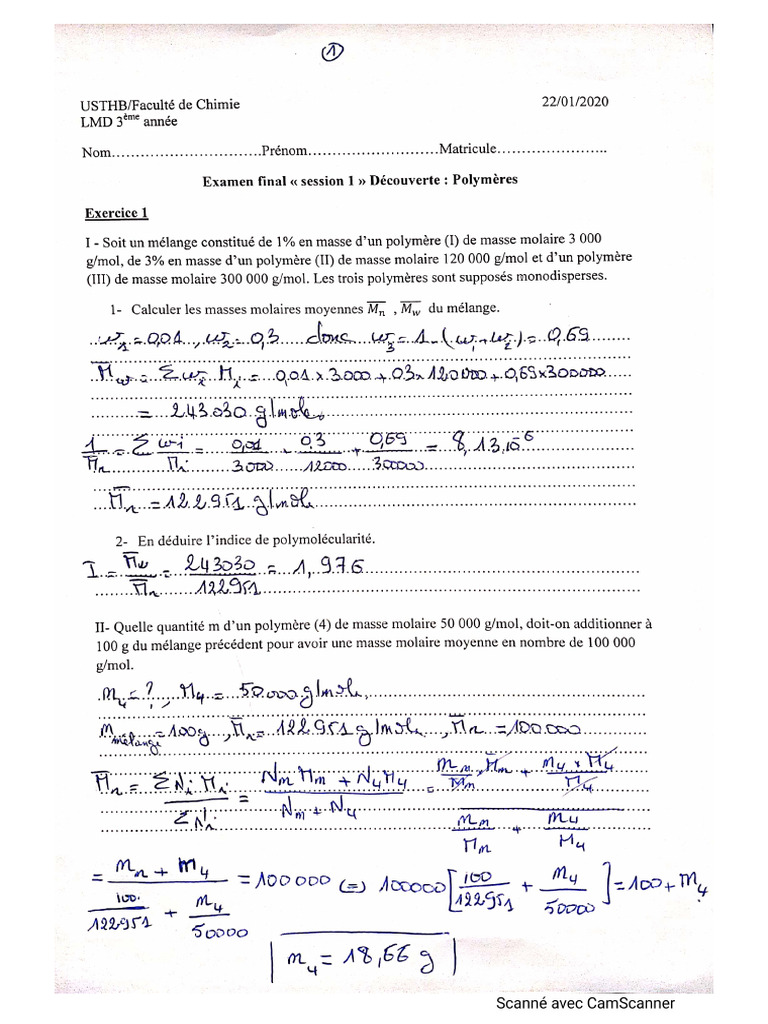 ①
USTHB/Faculté de Chimie 22/01/2020
LMD 3ème année
Nom………………………….Prénom……………………………Matricule…………………..
Examen final « session 1 » Découverte : Polymères
Exercice 1
I - Soit un mélange constitué de 1% en masse d'un polymère (I) de masse molaire 3 000
g/mol, de 3% en masse d'un polymère (II) de masse molaire 120 000 g/mol et d'un polymère
(III) de masse molaire 300 000 g/mol. Les trois polymères sont supposés monodisperses.
1- Calculer les masses molaires moyennes M̅n , M̅w du mélange.
w₁ = 0,01 , w₂ = 0,3 donc w₃ = 1 - (w₁ + w₂) = 0,69
M̅w = Σ wi Mi = 0,01 x 3000 + 0,3 x 120000 + 0,69 x 300000
= 243.030 g/mole.
1/M̅n = Σ wi/Mi = 0,01/3000 + 0.3/12000 + 0,69/300000 = 8,13.10⁻⁶
M̅n = 122951 g/mole
2- En déduire l'indice de polymolécularité.
I = M̅w/M̅n = 243030/122951 = 1,976
II- Quelle quantité m d'un polymère (4) de masse molaire 50 000 g/mol, doit-on additionner à
100 g du mélange précédent pour avoir une masse molaire moyenne en nombre de 100 000
g/mol.
m₄ = ? , M₄ = 50.000 g/mole,
m mélange = 100g , M̅n = 122951 g/mole , M̅n = 100.000
M̅n = Σ Ni Mi / Σ Ni = (Nm Mm + N₄ M₄) / (Nm + N₄) = (mm/Mm x Mm + m₄ x M₄/M₄) / (mm/Mm + m₄/M₄)
= (mn + m₄) / (100/122951 + m₄/50000) = 100000 (=) 100000 [100/122951 + m₄/50000] = 100 + m₄
m₄ = 18,66 g
Scanné avec CamScanner